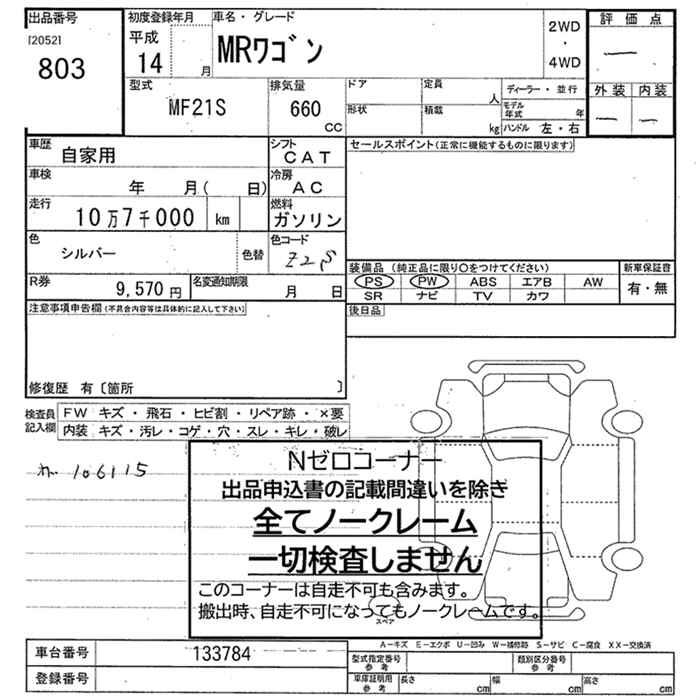 出品番号
[2052]
803
初度登録年月
平成
14 月
車名・グレード
MRワゴン
2WD
・
4WD
評価点
—
外装 内装
— —
型式
MF21S
排気量
660
CC
ドア
形状
定員
人
積載
kg
ディーラー・並行
モデル年式 年
ハンドル 左・右
車歴
自家用
シフト
CAT
セールスポイント(正常に機能するものに限ります)
車検
年 月( 日)
冷房
AC
走行
10万7千000 km
燃料
ガソリン
色
シルバー
色替
色コード
Z2S
装備品 (純正品に限り○をつけてください)
PS PW ABS エアB AW
SR ナビ TV カワ
新車保証書
有・無
R券
9,570 円
名変通知期限
月 日
後日品
注意事項申告欄(不具合内容等は具体的に記入して下さい)
修復歴 有〔箇所 〕
検査員記入欄
FW キズ・飛石・ヒビ割・リペア跡・×要
内装 キズ・汚レ・コゲ・穴・スレ・キレ・破レ
106115
Nゼロコーナー
出品申込書の記載間違いを除き
全てノークレーム
一切検査しません
このコーナーは自走不可も含みます。
搬出時、自走不可になってもノークレームです。
スペア
A-キズ E-エクボ U-凹み W-補修跡 S-サビ C-腐食 XX-交換済
車台番号
133784
型式指定番号
参考
類別区分番号
参考
登録番号
車庫証明用
参考
長さ cm
幅 cm
高さ cm